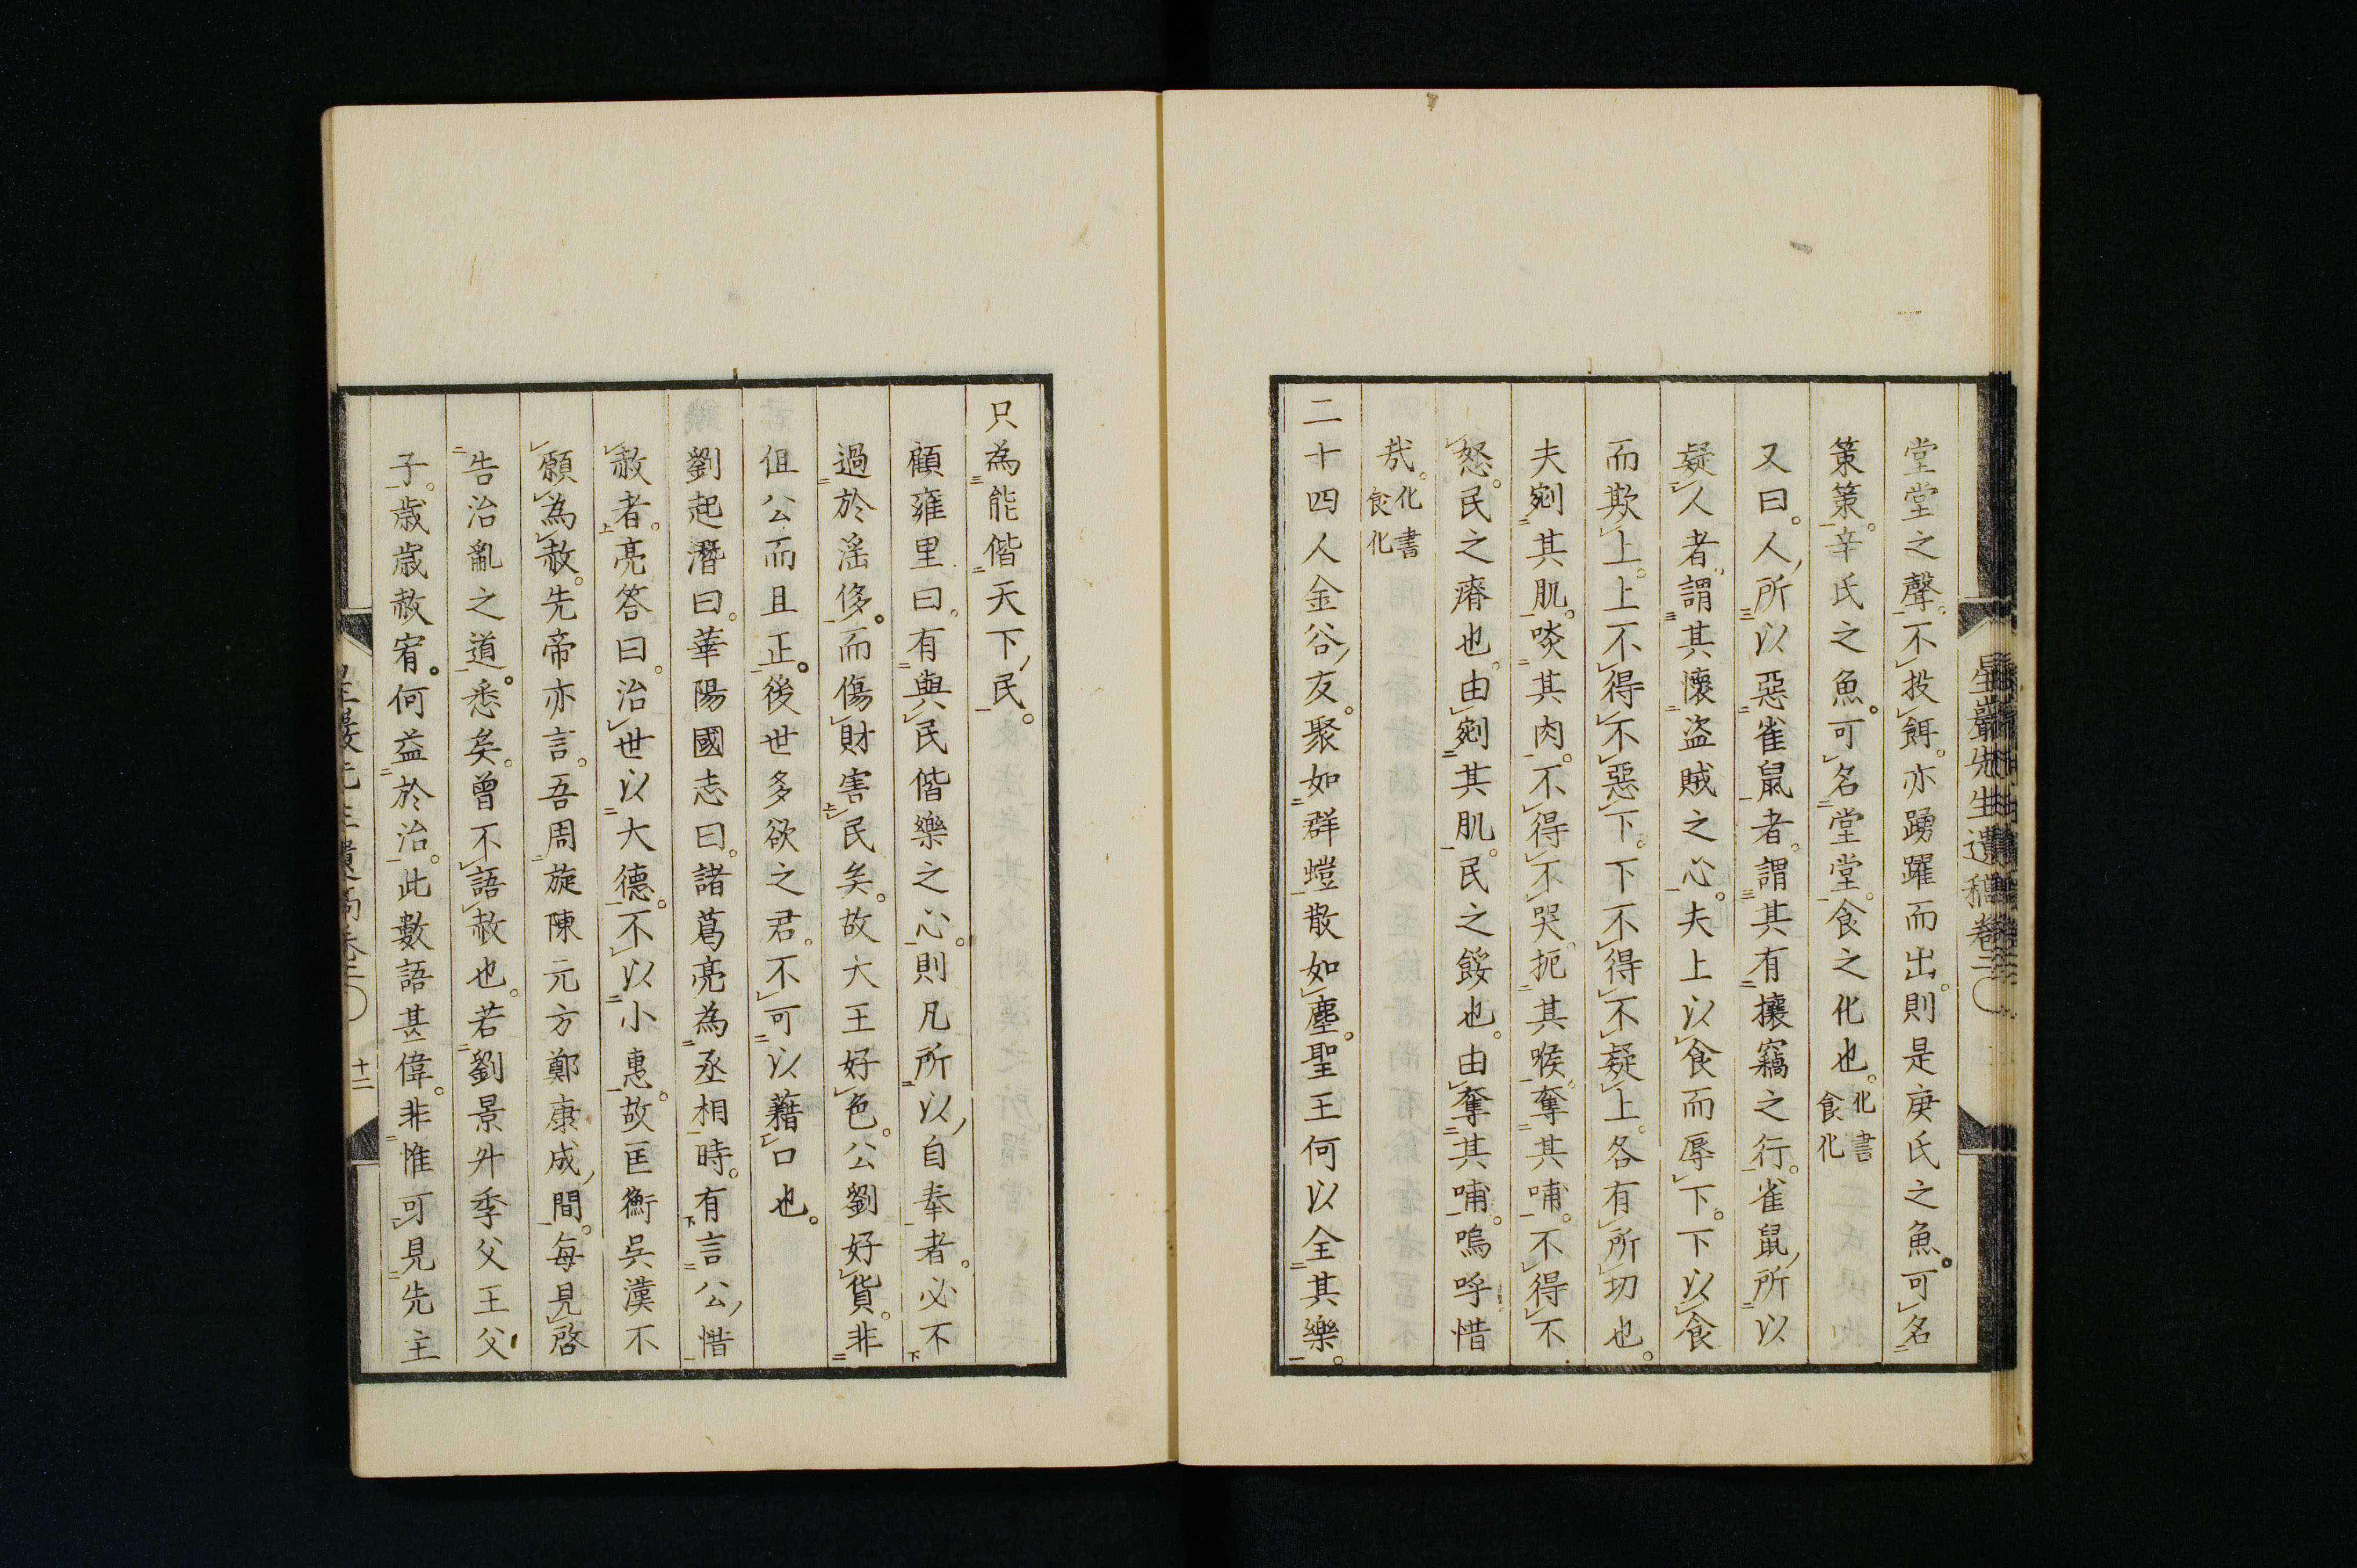 星巖先生遺稿卷二
堂堂之聲。不投餌。亦踴躍而出。則是庚氏之魚。可名
策策。辛氏之魚。可名堂堂。食之化也。化書食化
又曰。人所以惡雀鼠者。謂其有攘竊之行。雀鼠所以
疑人者。謂其懷盗賊之心。夫上以食而辱下。下以食
而欺上。上不得不惡下。下不得不疑上。各有所切也。
夫剜其肌。啖其肉。不得不哭。扼其喉。奪其哺。不得不
怒。民之瘠也。由剜其肌。民之餒也。由奪其哺。嗚呼惜
哉。化書食化
二十四人金谷友。聚如群螘散如塵。聖王何以全其樂。
只為能偕天下民。
顧雍里曰。有與民偕樂之心。則凡所以自奉者。必不
過於淫侈。而傷財害民矣。故大王好色。公劉好貨。非
但公而且正。後世多欲之君。不可以藉口也。
劉起潛曰。華陽國志曰。諸葛亮為丞相時。有言公惜
赦者。亮答曰。治世以大德。不以小惠。故匡衡吳漢不
願為赦。先帝亦言。吾周旋陳元方鄭康成間。每見啓
告治亂之道。悉矣。曾不語赦也。若劉景升季父王父
子。歲歲赦宥。何益於治。此數語甚偉。非惟可見先主
十二